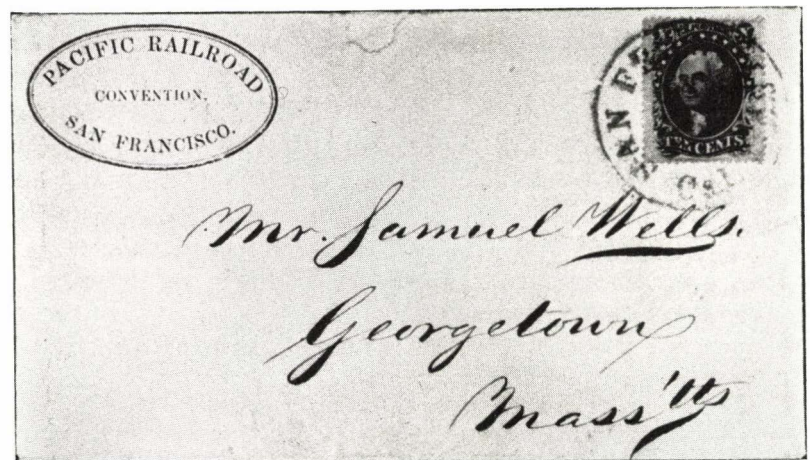 PACIFIC RAILROAD
CONVENTION.
SAN FRANCISCO.
TEN CENTS
SAN F
Cal
Mr. Samuel Wells.
Georgetown
Mass'tts